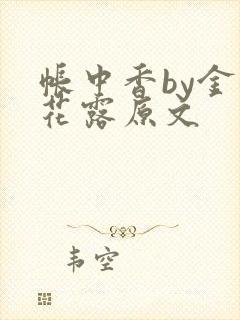 帐中香by金
花露原文
韦空